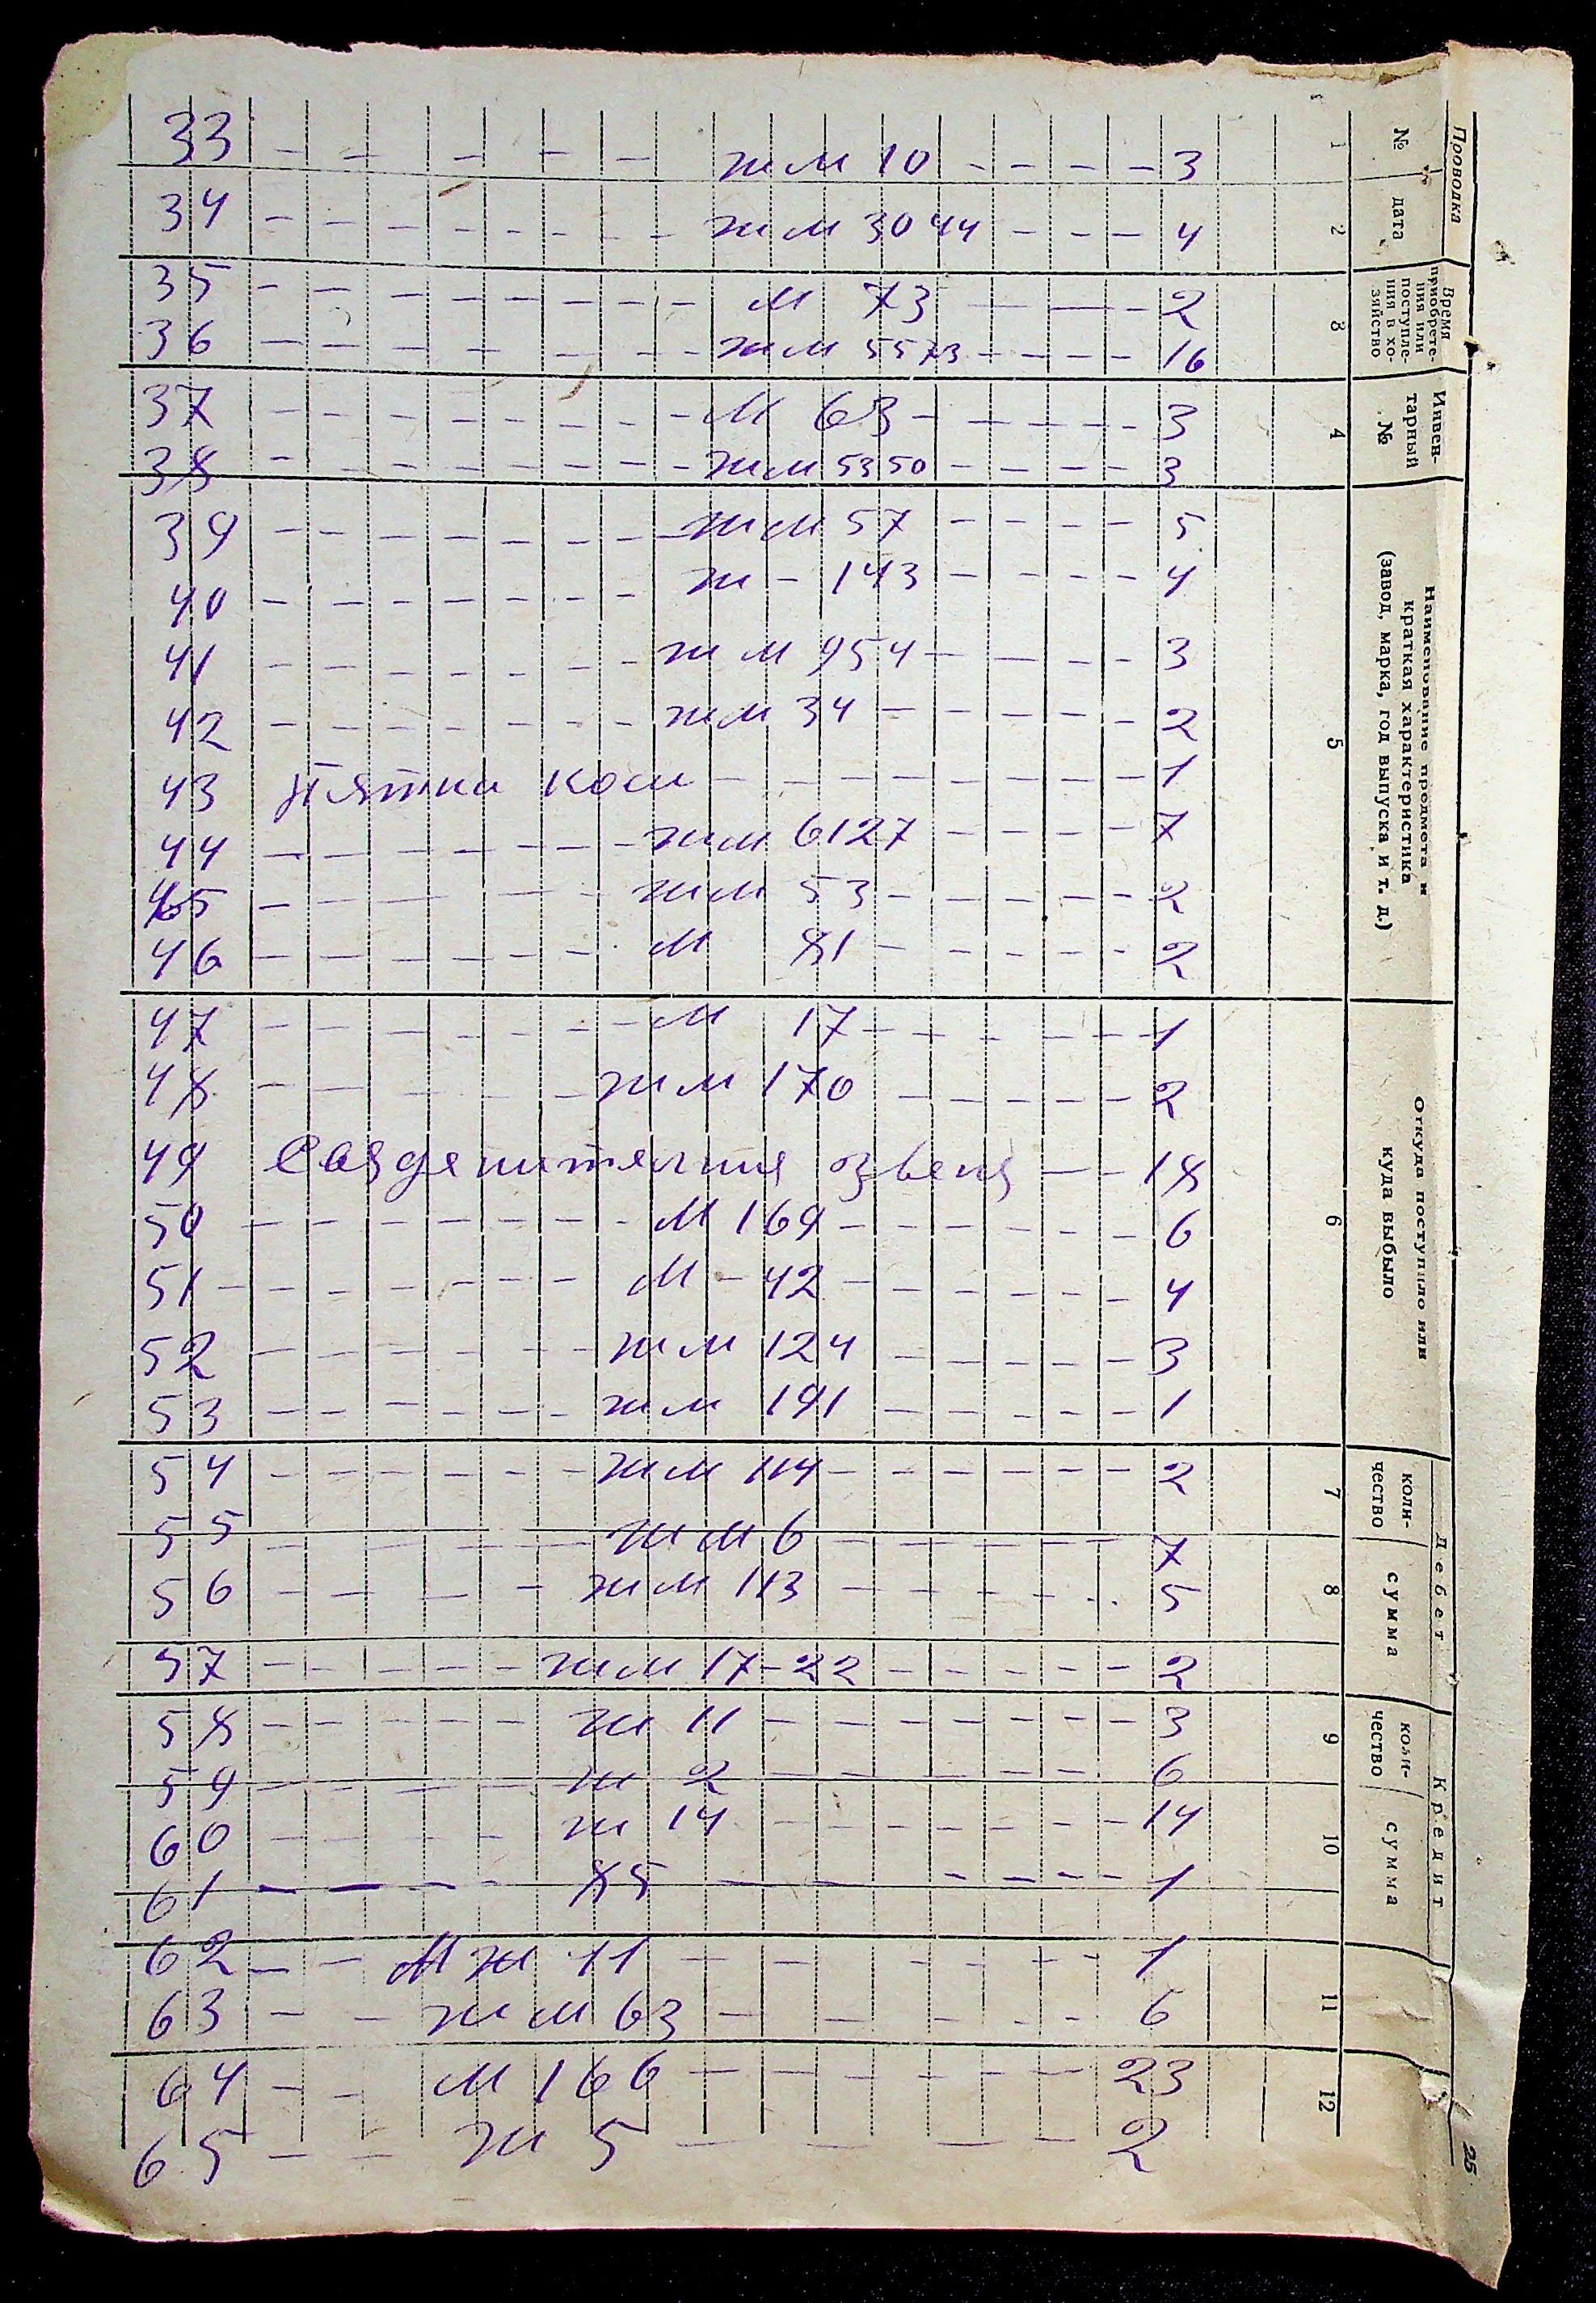 33 - - - - - жм 10 - - - - 3
34 - - - - - - - - жм 3044 - - - 4
35 - - - - - - - - М 73 - - - 2
36 - - - - - - - - жм 5573 - - - - 16
37 - - - - - - - - М 63 - - - - - 3
38 - - - - - - - - жм 5350 - - - - 3
39 - - - - - - - - жм 57 - - - - 5
40 - - - - - - - ж - 143 - - - - 4
41 - - - - - - - жм 954 - - - - 3
42 - - - - - - - жм 34 - - - - - 2
43 Пятки коси - - - - - - - - 1
44 - - - - - - - жм 6127 - - - - 7
45 - - - - - - жм 53 - - - - - 2
46 - - - - - - М 81 - - - - - 2
47 - - - - - - - М 17 - - - - - - 1
48 - - - - - - жм 170 - - - - - 2
49 - - 18
50 - - - - - - - М 169 - - - - - - 6
51 - - - - - - - М - 42 - - - - - - 4
52 - - - - - - - жм 124 - - - - - 3
53 - - - - - - жм 191 - - - - - 1
54 - - - - - - жм 114 - - - - - - 2
55 - - - - - жм 6 - - - - - - 7
56 - - - - - жм 113 - - - - - 5
57 - - - - - жм 17-22 - - - - - 2
58 - - - - - ж 11 - - - - - - - 3
59 - - - - ж 2 - - - - - - 6
60 - - - - - ж 14 - - - - - - - 14
61 - - - - - 85 - - - - - - 1
62 - - М ж 11 - - - - - - - 1
63 - - жм 63 - - - - - - 6
64 - - М 166 - - - - - - - 23
65 - - ж 5 - - - - - 2
Проводка
№
дата
Время
приобрете-
ния или
поступле-
ния в хо-
зяйство
Инвен-
тарный
№
Наименование предмета и
краткая характеристика
(завод, марка, год выпуска и т. д.)
Откуда поступило или
куда выбыло
Дебет
коли-
чество
сумма
Кредит
коли-
чество
сумма
1 2 3 4 5 6 7 8 9 10 11 12
25